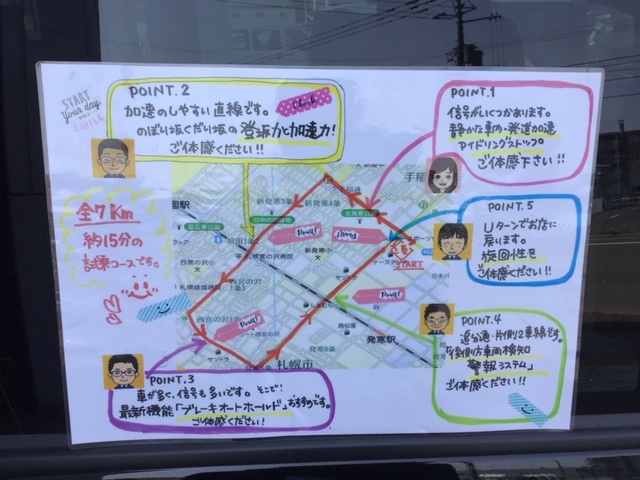 START
your day
with a
SMILE
POINT.2
加速のしやすい直線です。
のぼり坂くだり坂の登坂力と加速力!
ご体感ください!!
Check
POINT.1
信号がいくつかあります。
静かな車内・発進加速
アイドリングストップ
ご体感下さい!!
全7Km
約15分の
試乗コースです。
新発寒3条
新発寒4条
手稲
新発寒小
Point!
Point!
START
POINT.5
Uターンでお店に
戻ります。
旋回性を
ご体感ください!!
西宮の沢小
札幌宮の沢病院
サンドラ
西松屋
発寒駅
発寒8条
札幌市
サンドラ
Point!
Point!
POINT.4
追分通・片側2車線です。
「後側方車両検知
警報システム」
ご体感ください!!
POINT.3
車が多く、信号も多いです。そこで!
最新機能「ブレーキオートホールド」おすすめです。
ご体感ください!